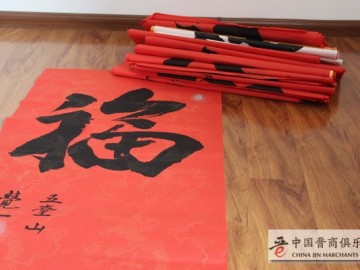 福
五臺山
覺
中国晋商俱乐
CHINA JIN MARCHANTS